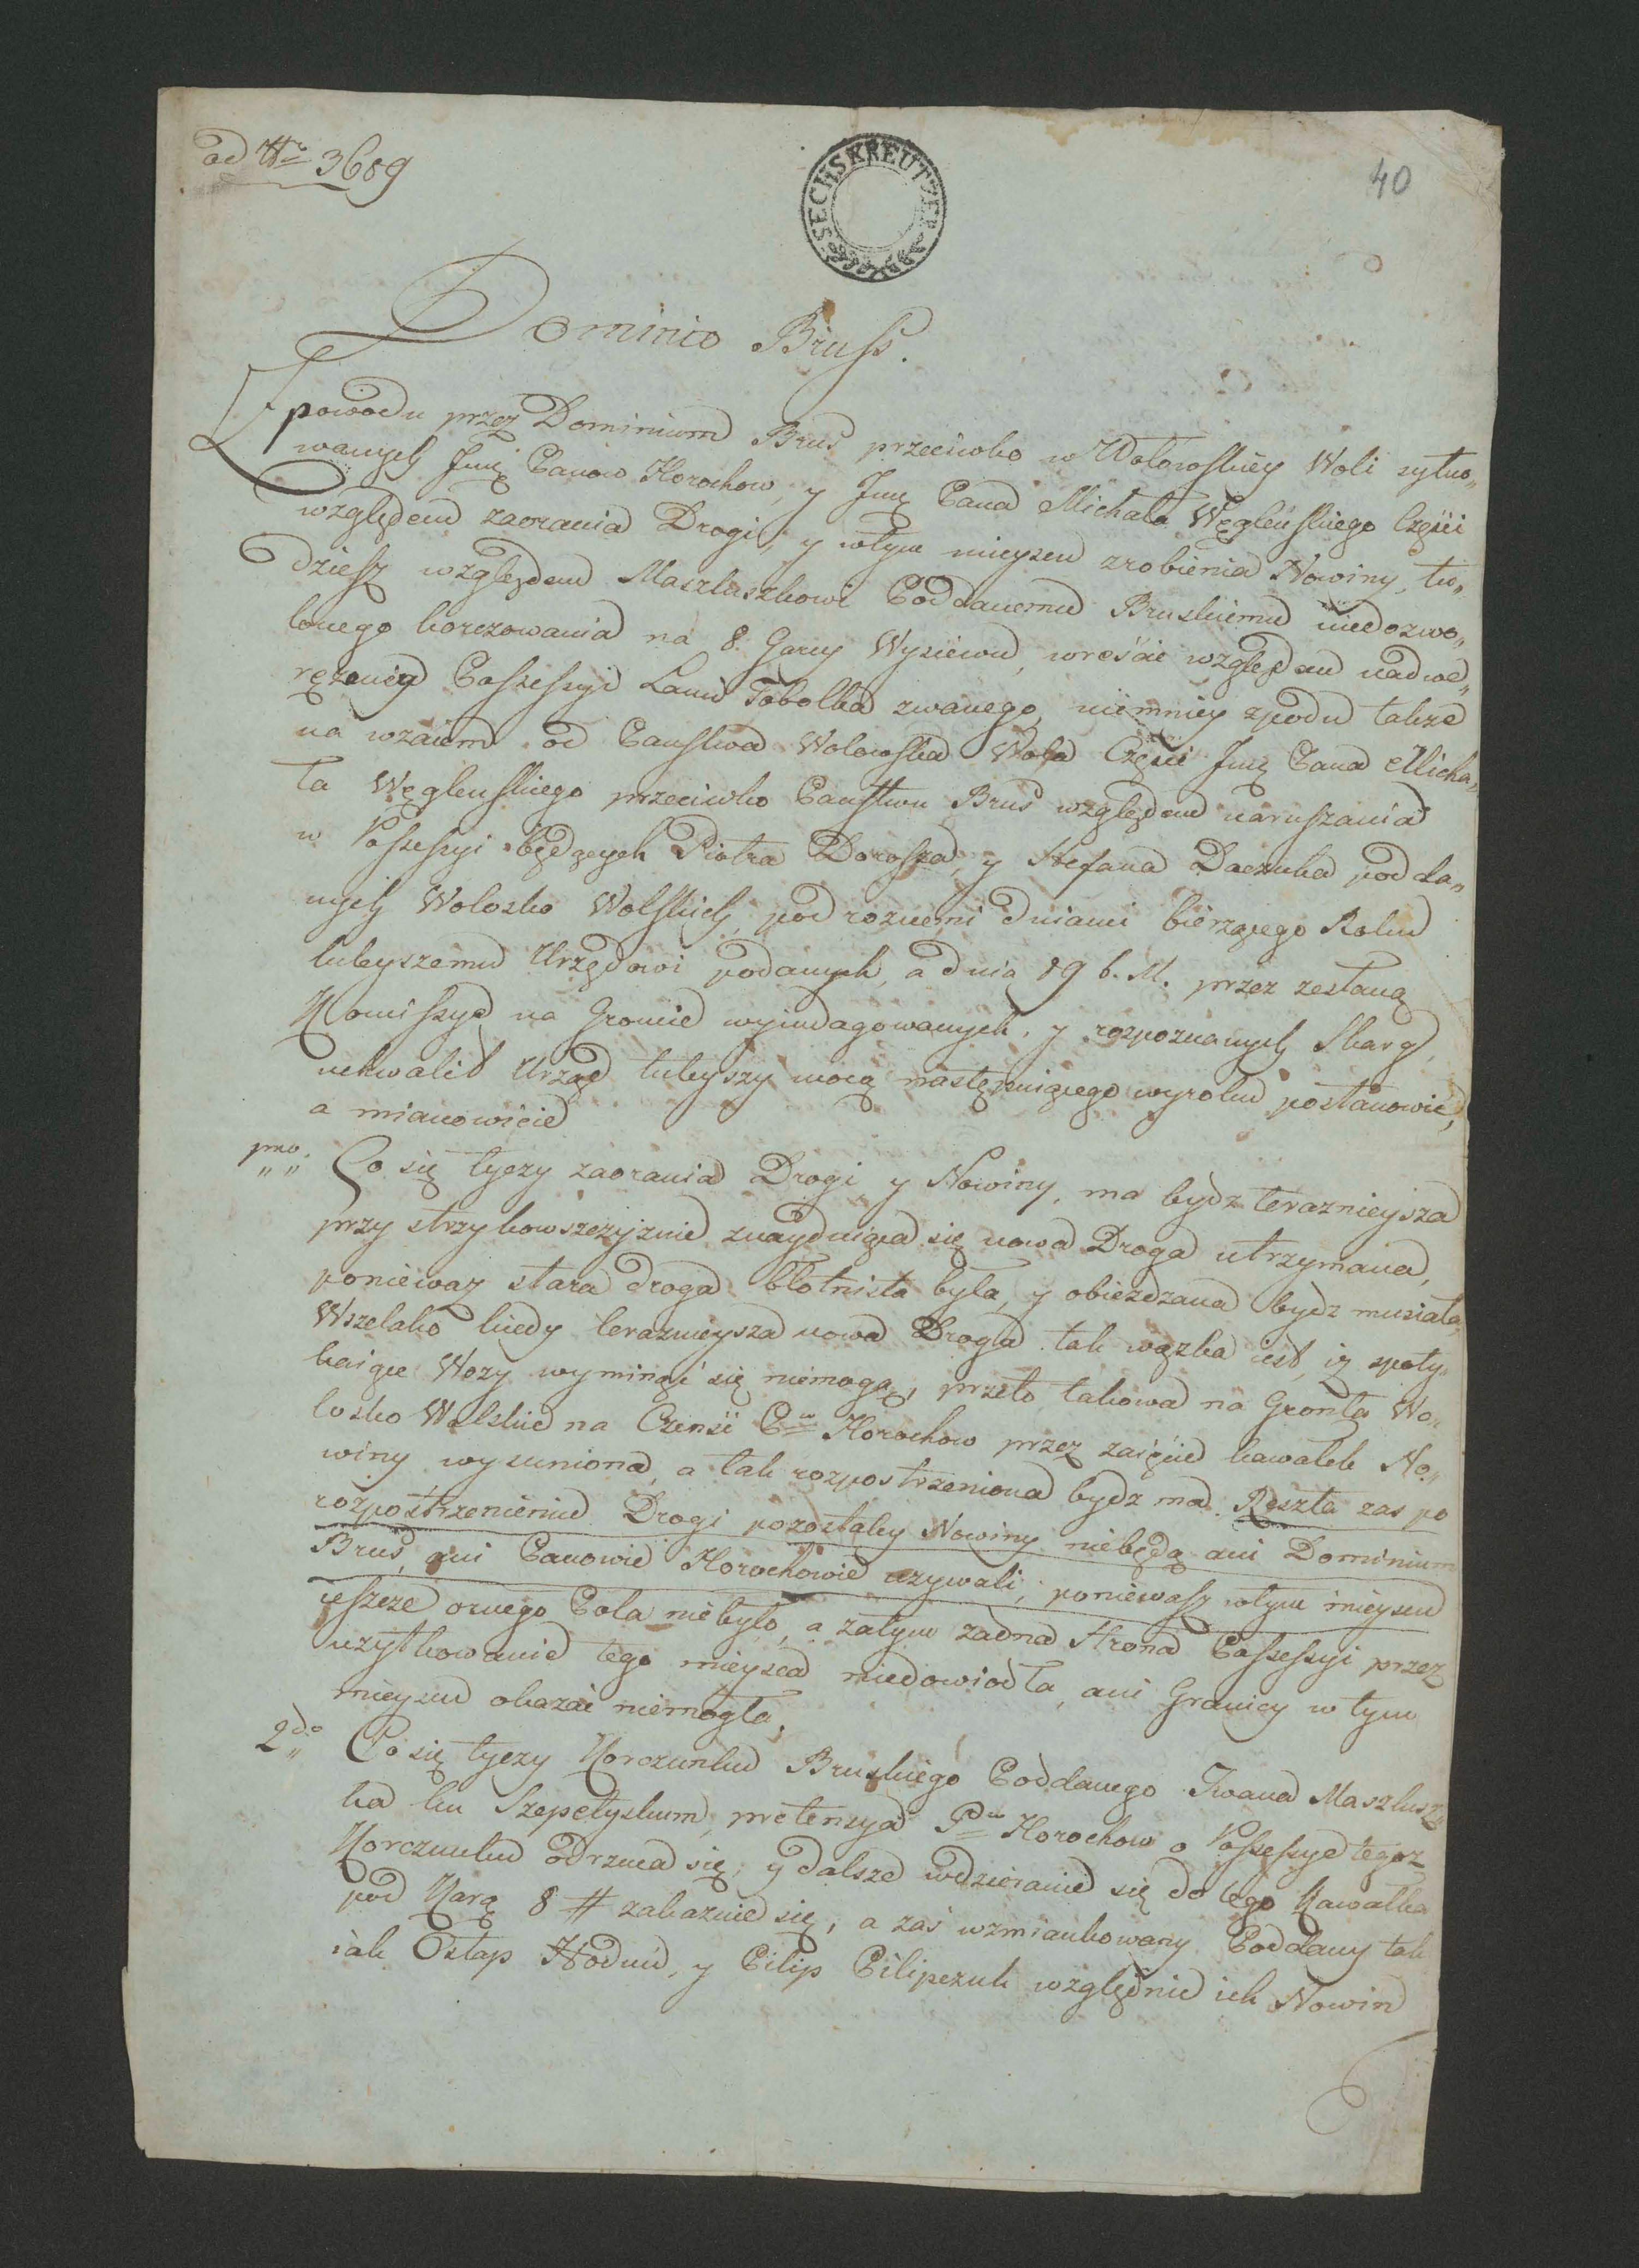 ad Nro 3689
40
SECHSKREUTZER
Dominio Bruss.
Z powodu przez Dominium Brus przeciwko w Wołowskiey Woli sytuo„
wanych Jmć Panow Horochow, y Jmć Pana Michała Węgleńskiego Części
względem zaorania Drogi, y wtym mieyscu zrobienia Nowiny, tu„
dziesz względem Maszluszkowi Poddanemu Bruskiemu niedozwo„
lonego korczowania na 8 Garcy Wysiewu, wreście względem nadwe„
rężenia Possessyi Lanu Tobolka zwanego, niemniey zpodu także
na wzaiem od Państwa Wolowska Wola Części Jmć Pana Micha„
ła Węglenskiego przeciwko Państwu Brus względem naruszania
w Possessyi będących Piotra Dorosza, y Stefana Daczuka podda„
nych Wolosko Wolskich, pod roznemi dniami bieżącego Roku
tuteyszemu Urzędowi podanych, a dnia 19 b. M. przez zesłaną
Komissyę na Groncie wyindagowanych, y rozpoznanych Skarg,
uchwalił Urząd tuteyszy mocą następuiącego wyroku postanowić,
a mianowicie
pmo Co się tyczy zaorania Drogi y Nowiny, ma bydz teraznieysza
przy strzykowszczyznie znayduiąca się nowa Droga utrzymana,
poniewaz stara droga błotnista była, y obiezdzana bydz musiała,
Wszelako kiedy teraznieysza nowa Droga tak wązka iest, iz spoty„
kaiące Wozy wyminąć się niemogą, przeto takowa na Gronta Wo„
losko Wolskie na Czensi Pw Horochow przez zaięcie kawałek No„
winy wysuniona, a tak rozpostrzeniona bydz ma. Reszta zas po
rozpostrzenieniu Drogi pozostałey Nowiny niebędą ani Dominium
Brus, ani Panowie Horochowie uzywali, poniewasz wtym mieyscu
ieszcze ornego Pola niebyło, a zatym żadna Strona Possessyi przez
uzytkowanie tego mieysca niedowiodła, ani Granicy w tym
mieyscu okazać niemogła.
2do Co się tyczy Korczunku Bruskiego Poddanego Iwana Maszlusz„
ka ku Szepetyskum, pretensya Pw Horochow o Possessye tegoz
Korczunku odrzuca się, y dalsze wdzieranie się do tego Kawałka
pod Karą 8 # zakazuie się, a zaś wzmiankowany Poddany tak
iak Ostap Hodun, y Pilip Pilipczuk względnie ich Nowin